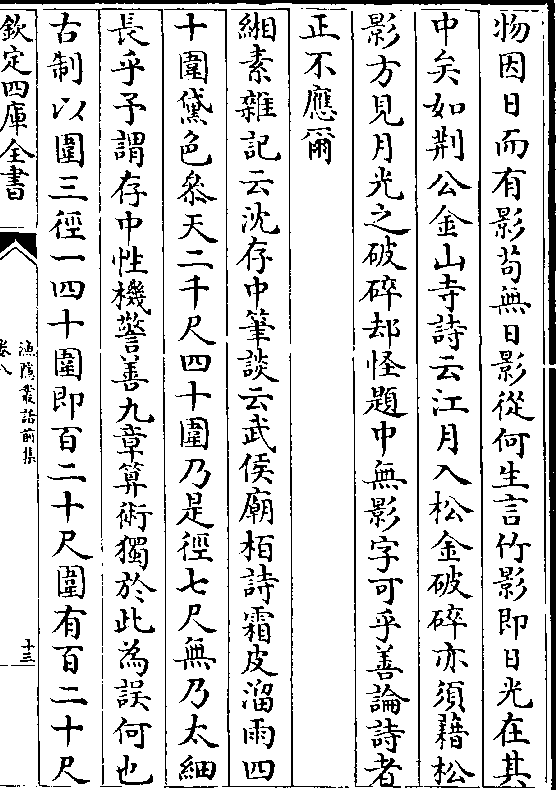 物因日而有影苟無日影從何生言竹影即日光在其
中矣如荆公金山寺詩云江月入松金破碎亦須藉松
影方見月光之破碎却怪題中無影字可乎善論詩者
正不應爾
緗素雜記云沈存中筆談云武侯廟柏詩霜皮溜雨四
十圍黛色叅天二千尺四十圍乃是徑七尺無乃太細
長乎予謂存中性機警善九章算術獨於此為誤何也
古制以圍三徑一四十圍即百二十尺圍有百二十尺
欽定四庫全書
漁隱叢話前集
卷八
十三